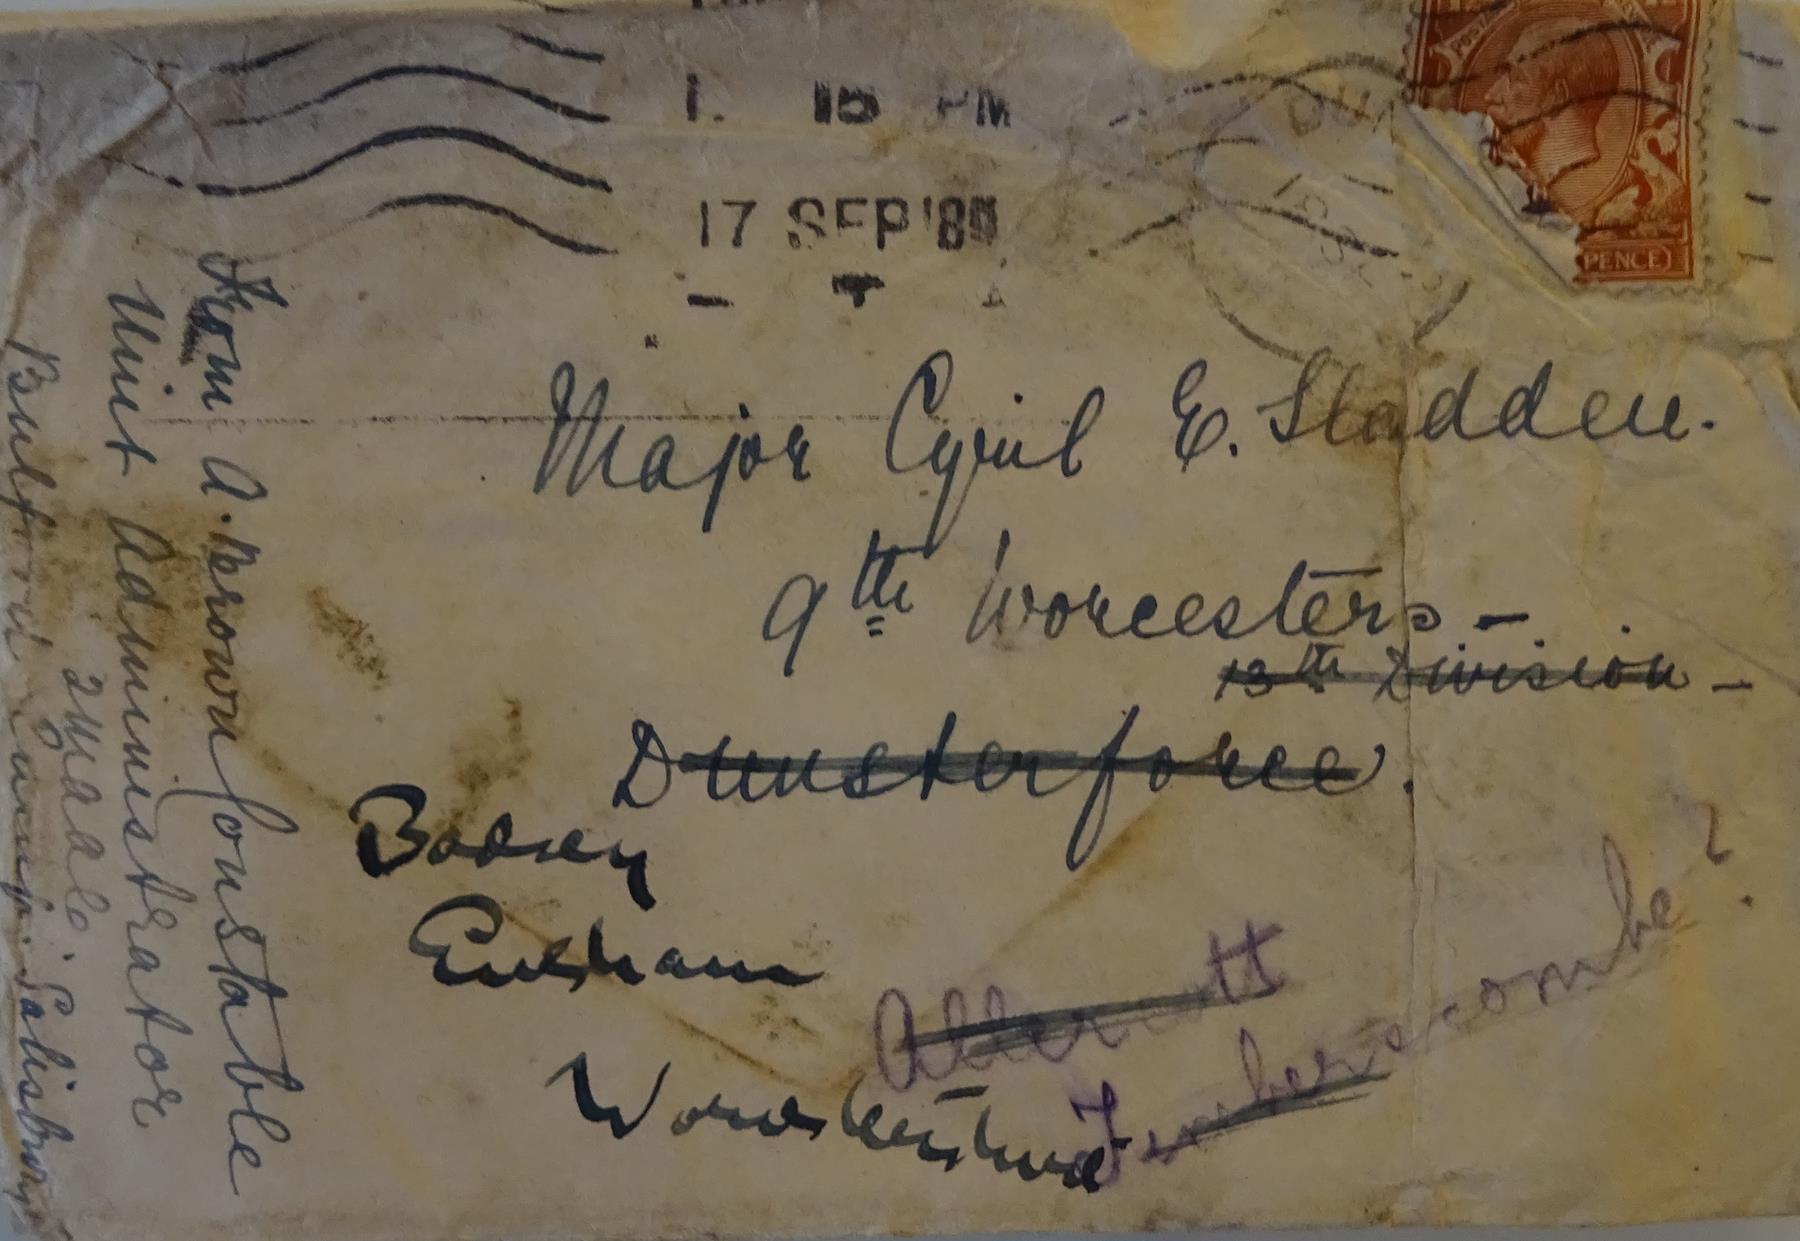 1. 15 PM
17 SEP
PENCE
Major Cyril E. Sladden.
9th Worcesters -
13th Division -
Dunsterforce.
Badsey
Evesham
Worcestershire
Allercott
Timberscombe?
From A. Brown Constable
Unit Administrator
2 M A A C
Bulford Camp. Salisbury